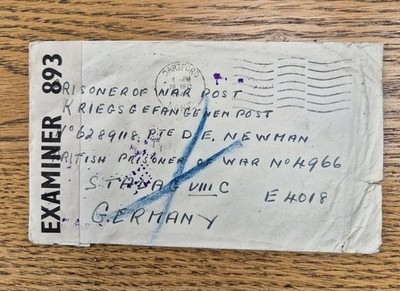 EXAMINER 893
DARTFORD
PRISONER OF WAR POST
KRIEGSGEFANGENEN POST
No 6289118 PTE D.E. NEWMAN
BRITISH PRISONER OF WAR No 4966
STALAG VIII C
E 4018
GERMANY